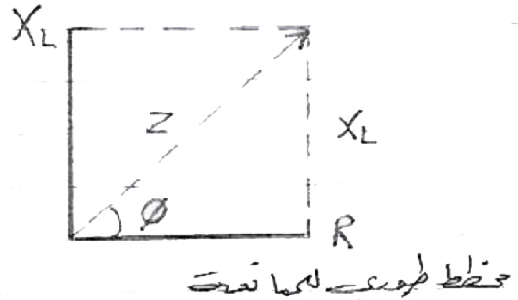 X_L
Z
X_L
Ø
R
مخطط طوري للممانعة